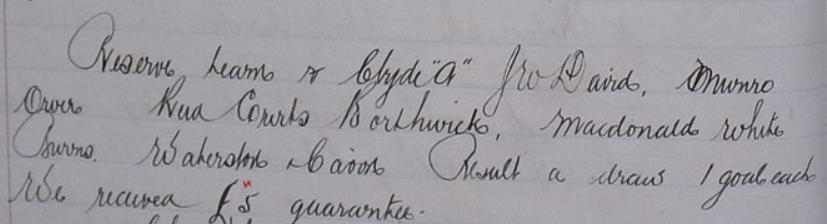 Reserve team v Clyde "A" Jro Daird, Munro
Rua Courts Borthwick, Macdonald White
Burns. Waterston Result a draw 1 goal each
We received £5 guarantee.